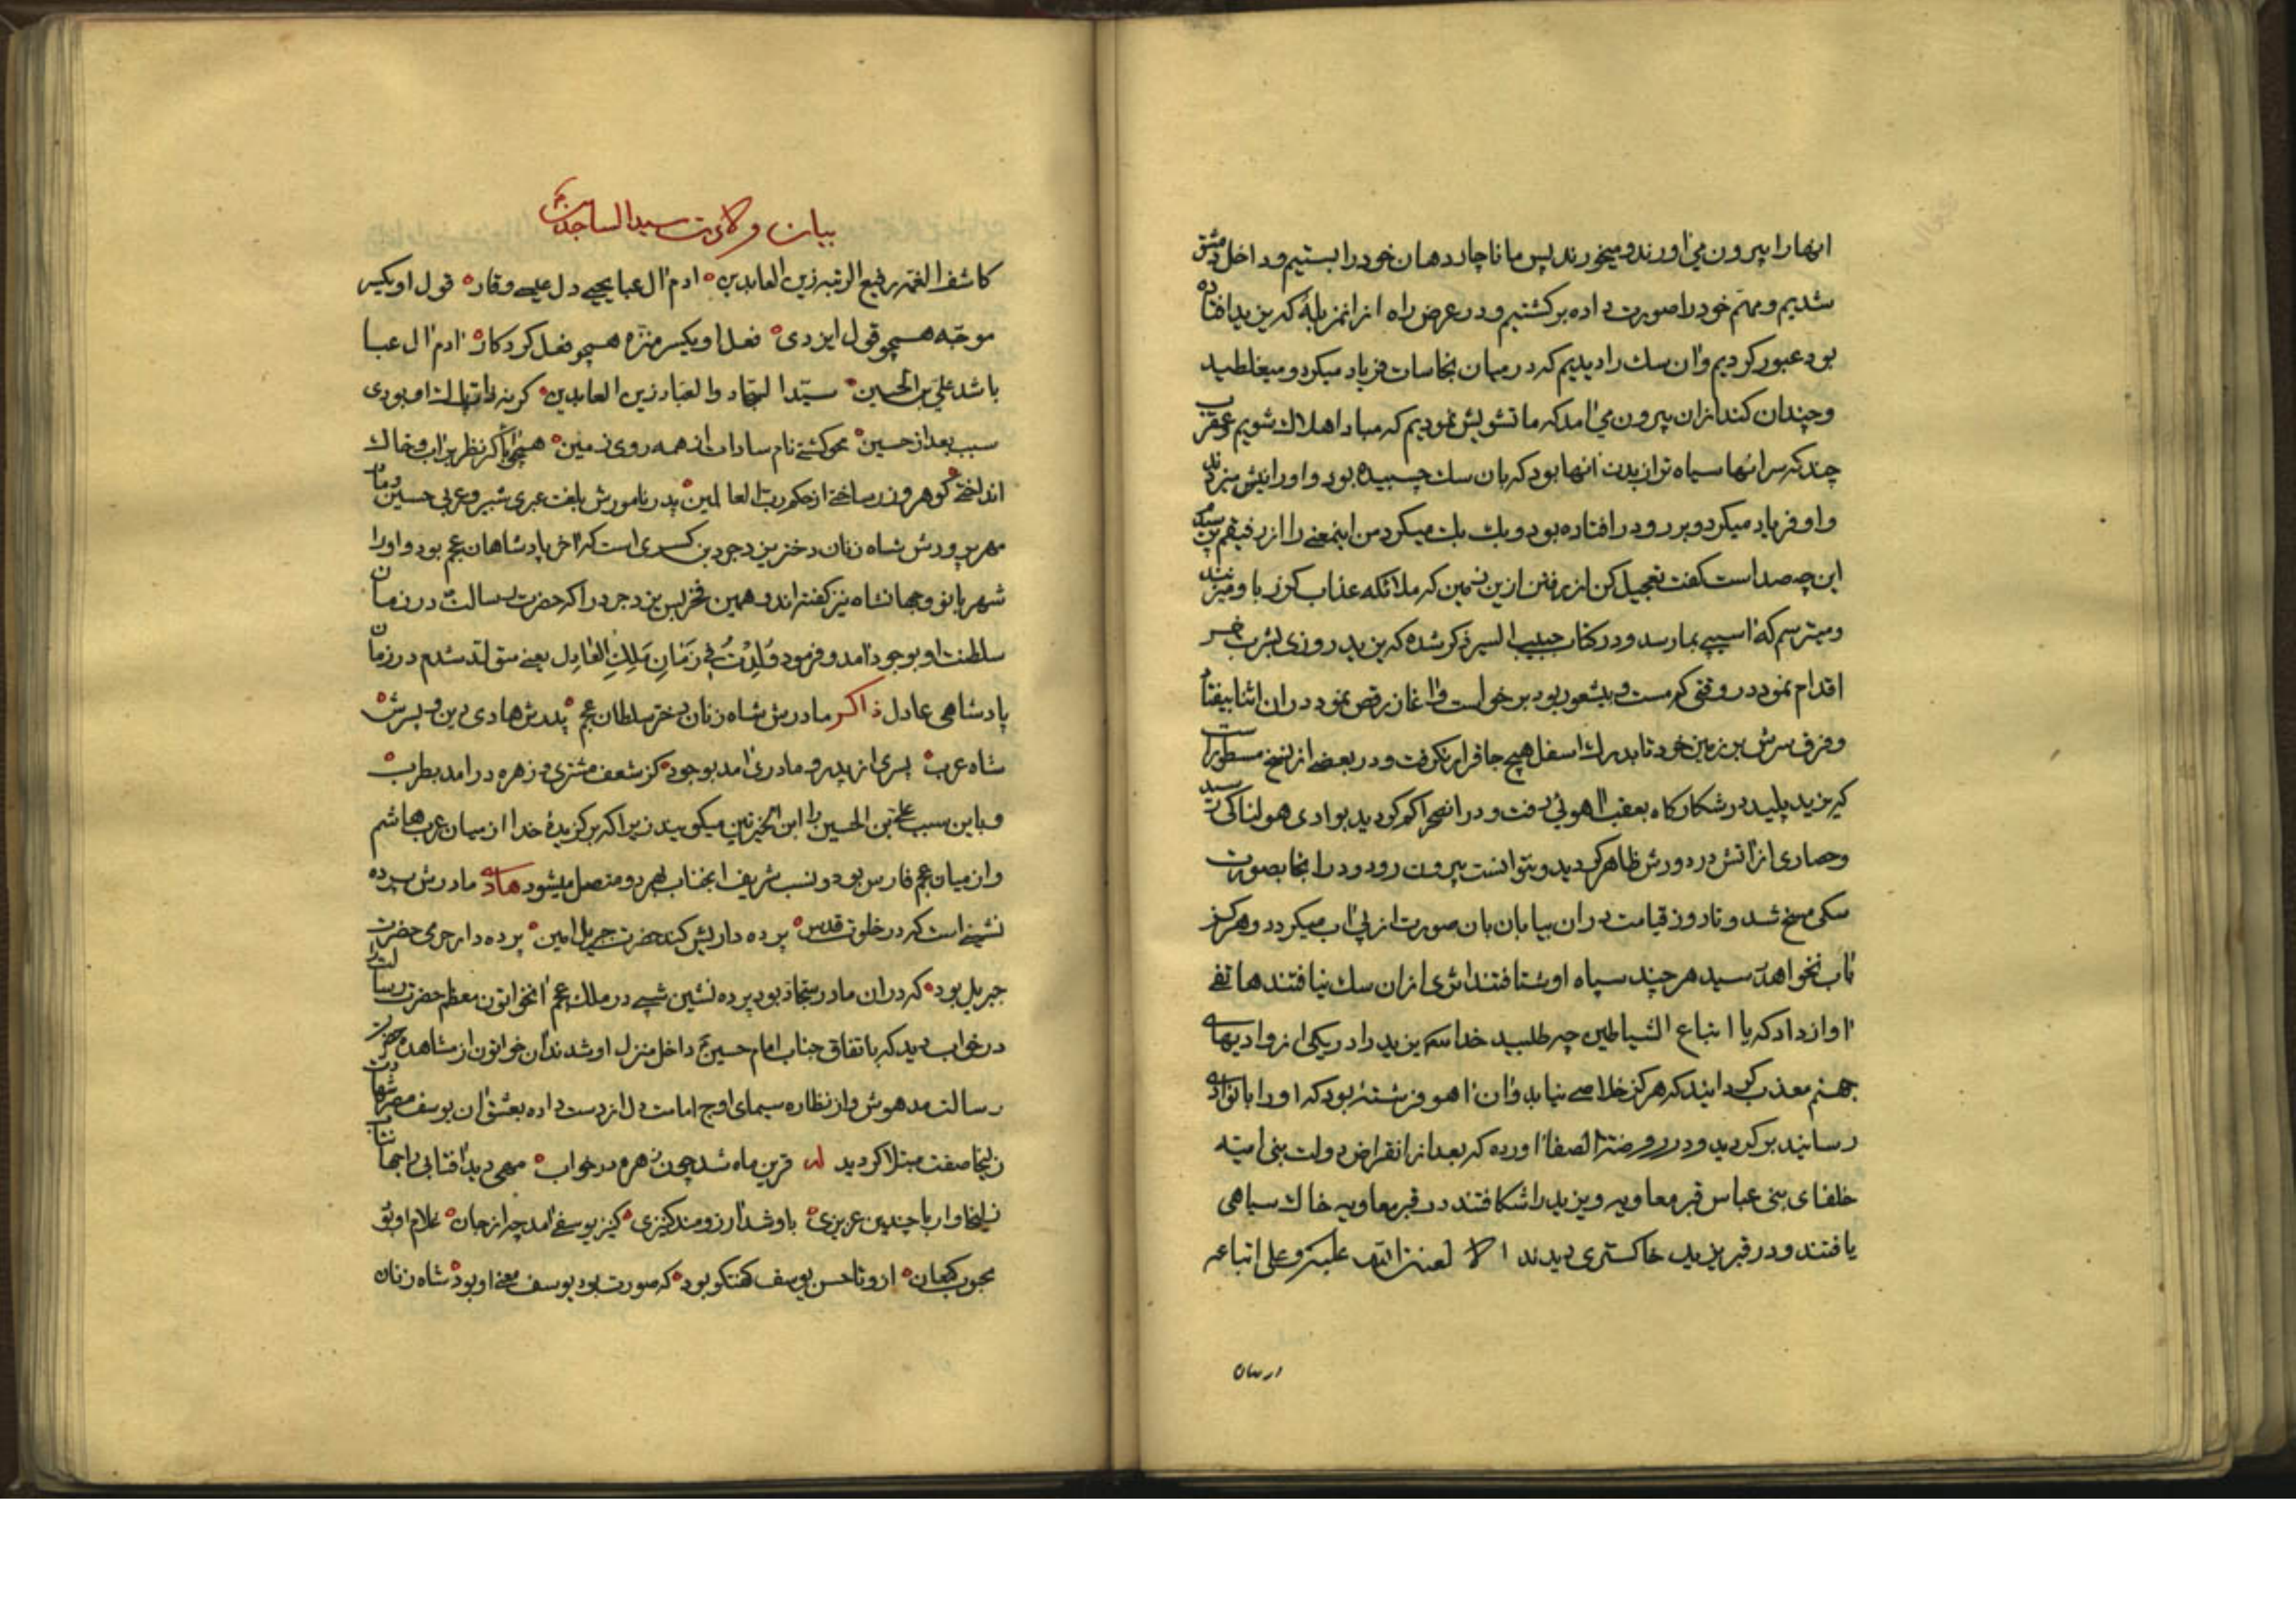 انهارا بیرون می آورند و میخورند پس ما ناچار دهان خود را بستیم و داخل دمشق
شدیم و مهم خود را صورت داده برگشتیم و در عرض راه از انمزبلهٔ که یزید افتاده
بود عبور کردیم و آن سک را دیدیم که در میان نجاسات فریاد میکرد و میغلطید
و چندان کند ازان بیرون می آمد که ما تشویش نمودیم که مبادا هلاک شویم و عقرب
چند که سر انها سیاه تر از بدن انها بود که بان سک چسبیده بود و او را نیش میزدند
و او فریاد میکرد و برو در افتاده بود و بک بک میکرد من اینمعنی را از رفیقم پرسیدم
این چه صداست گفت تعجیل کن از رفتن ازین زمین که ملائکه عذاب گرز با و میزنند
و میترسم که آسیبی بما رسد و در کتاب حبیب السیر ذکر شده که یزید روزی بشرب خمر
اقدام نمود در وقتی که مست و بیشعور بود برخواست و آغاز رقص نمود در ان اثنا بیفتاد
و فرق سرش بر زمین خورد تا بدرک اسفل هیچ جا قرار نگرفت و در بعضی از نسخ مسطور است
که یزید پلید در شکارکاه بعقب آهوئی رفت و در انصحرا کم کردید بوادی هولناکی رسید
و حصاری از آتش در دورش ظاهر کردید و نتوانست بیرون رود و در انجا بصورت
سکی مسخ شد و تا روز قیامت در ان بیابان بان صورت از پی آب میکردد و هرکز
باب نخواهد رسید هر چند سپاه او شتافتند اثری ازان سک نیافتند هاتفی
آواز داد که یا اتباع الشیاطین چه طلبید خدا یزید را در یکی از وادیهای
جهنم معذب کردانید که هرکز خلاصی نیابد و ان آهو فرشتهٔ بود که او را بانوادی
رسانید بر کردید و در روضة الصفا آورده که بعد از انقراض دولت بنی امیه
خلفای بنی عباس قبر معاویه و یزید را شکافتند در قبر معاویه خاک سیاهی
یافتند و در قبر یزید خاکستری دیدند الا لعنة الله علیه و علی اتباعه
بیان ولادت سید الساجدین
کاشف الغمه رفیع الرتبه زین العابدین ادم آل عبا یحیی دل عیسی وقار قول او یکسر
موجه همچو قول ایزدی فعل او یکسر منزه همچو فعل کردکار ادم آل عبا
باشد علی بن الحسین سید السجاد و العباد زین العابدین کر نه ذات مبودی
سبب بعد از حسین محو کشتی نام سادات از همه روی زمین نظر بر آب و خاک
انداختی کوهر و زر ساختی از حکم رب العالمین پدر نامورش بلغت عبری شبر و عربی حسین و مادر
مهر پرورش شاه زنان دختر یزدجرد بن کسری است که آخر پادشاهان عجم بود و او را
شهربانو و جهانشاه نیز کفته اند و همین فخر بس یزدجرد را که حضرت رسالت در زمان
سلطنت او بوجود آمد و فرمود وُلِدْتُ فِی زَمَانِ مَلِکِ الْعَادِل یعنی متولد شدم در زمان
پادشاهی عادل ذاکر مادرش شاه زنان دختر سلطان عجم پدرش هادی دین و پسرش
شاه عرب پسری از پدر و مادری آمد بوجود کز شعف مشتری و زهره درامد بطرب
و باین سبب علی بن الحسین را ابن الخیرتین میکویند زیرا که برکزیدهٔ خدا از میان عرب هاشم
و از میان عجم فارس بود و نسب شریف انجناب بهر دو متصل میشود هادی مادرش پرده
نشینی است که در خلوت قدس پرده داریش کند حضرت جبریل امین پرده دار حرمی حضرت
جبریل بود که در ان مادر سجاد بود پرده نشین شبی در ملک عجم آنخواتون معظم حضرت رسالت را
در خواب دید که باتفاق جناب امام حسین داخل منزل او شدند آن خواتون از مشاهده حضرت
رسالت مدهوش و از نظاره سیمای اوج امامت دل از دست داده بعشق آن یوسف مصر شهادت
زلیخا صفت مبتلا کردید له قرین ماه شد چون زهره در خواب مهی دید آفتابی را جهانتاب
زلیخا وار با چندین عزیزی باو شد آرزومند کنیزی کنیز یوسفی آمد چه از جان غلام او تو
محبوب کنعان ازو تا حسن یوسف کفتکو بود که صورت بود یوسف معنی او بود شاه زنان